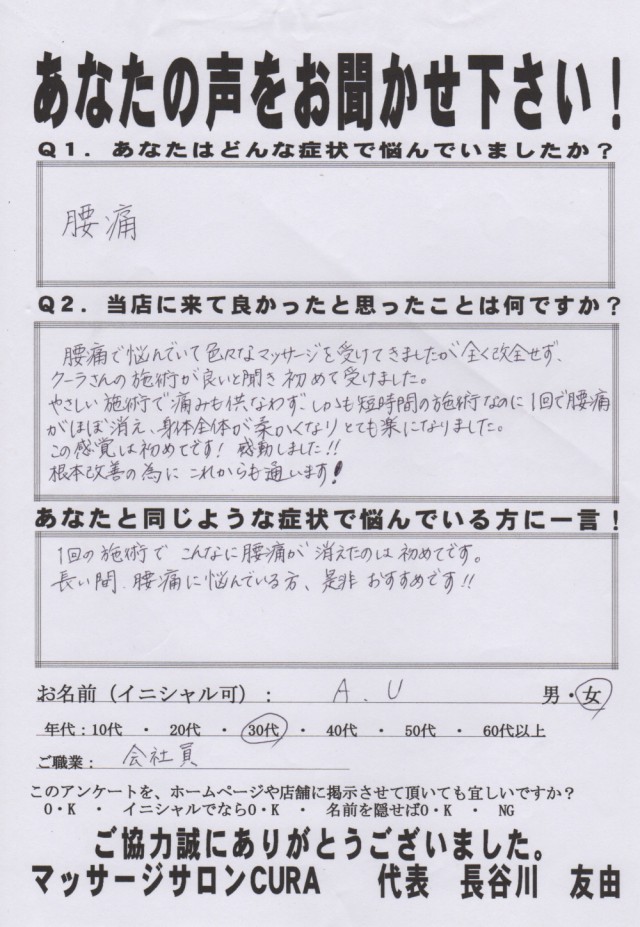 あなたの声をお聞かせ下さい！
Q1．あなたはどんな症状で悩んでいましたか？
腰痛
Q2．当店に来て良かったと思ったことは何ですか？
腰痛で悩んでいて色々なマッサージを受けてきましたが全く改全せず、
クーラさんの施術が良いと聞き初めて受けました。
やさしい施術で痛みも供なわず、しかも短時間の施術なのに1回で腰痛
がほぼ消え、身体全体が柔かくなりとても楽になりました。
この感覚は初めてです！感動しました!!
根本改善の為にこれからも通います！
あなたと同じような症状で悩んでいる方に一言！
1回の施術でこんなに腰痛が消えたのは初めてです。
長い間、腰痛に悩んでいる方、是非おすすめです!!
お名前（イニシャル可）： A.U 男・女
年代：10代 ・ 20代 ・ 30代 ・ 40代 ・ 50代 ・ 60代以上
ご職業： 会社員
このアンケートを、ホームページや店舗に掲示させて頂いても宜しいですか？
O・K ・ イニシャルでならO・K ・ 名前を隠せばO・K ・ NG
ご協力誠にありがとうございました。
マッサージサロンCURA 代表 長谷川 友由